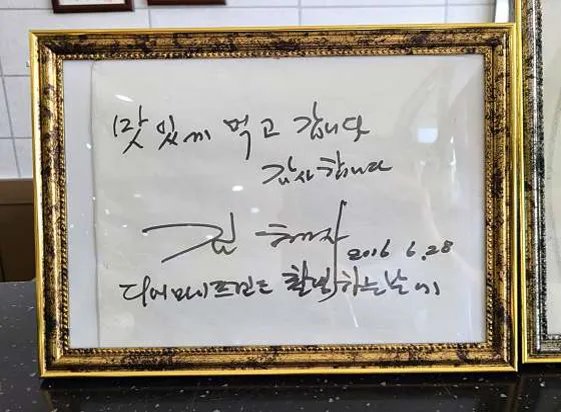 맛있게 먹고 갑니다
감사합니다
김혜자 2016 6.28
디어 마이 프렌드 촬영하는날에